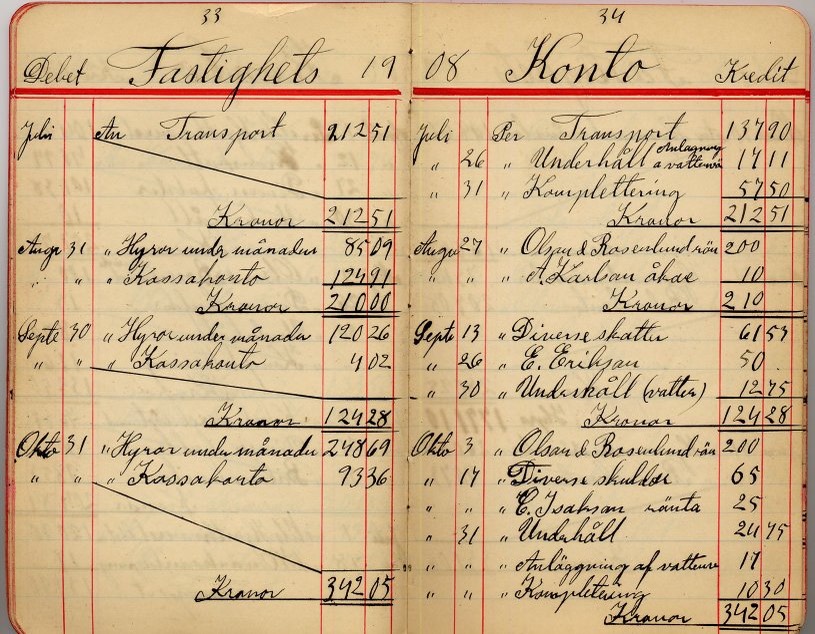 33
Debet Fastighets 19
Juli An Transport 212 51
Kronor 212 51
Augu 31 " Hyror under månaden 85 09
" " " Kassakonto 124 91
Kronor 210 00
Septe 30 " Hyror under månaden 120 26
" " " Kassakonto 4 02
Kronor 124 28
Okto 31 " Hyror under månaden 248 69
" " " Kassakonto 93 36
Kronor 342 05
34
08 Konto Kredit
Juli Per Transport 137 90
" 26 " Underhåll 17 11
" 31 " Komplettering 57 50
Kronor 212 51
Augu 27 " Olsen & Rosenlund rän 200
" " " A. Karlsan 10
Kronor 210
Septe 13 " Diverse skatter 61 53
" 26 " E. Eriksan 50
" 30 " Underhåll (vatter) 12 75
Kronor 124 28
Okto 3 " Olsan & Rosenlund rän 200
" 17 " Diverse skulder 65
" " " E. Isaksan ränta 25
" 31 " Underhåll 24 75
" " " Anläggning af vattenv 17
" " " Komplettering 10 30
Kronor 342 05